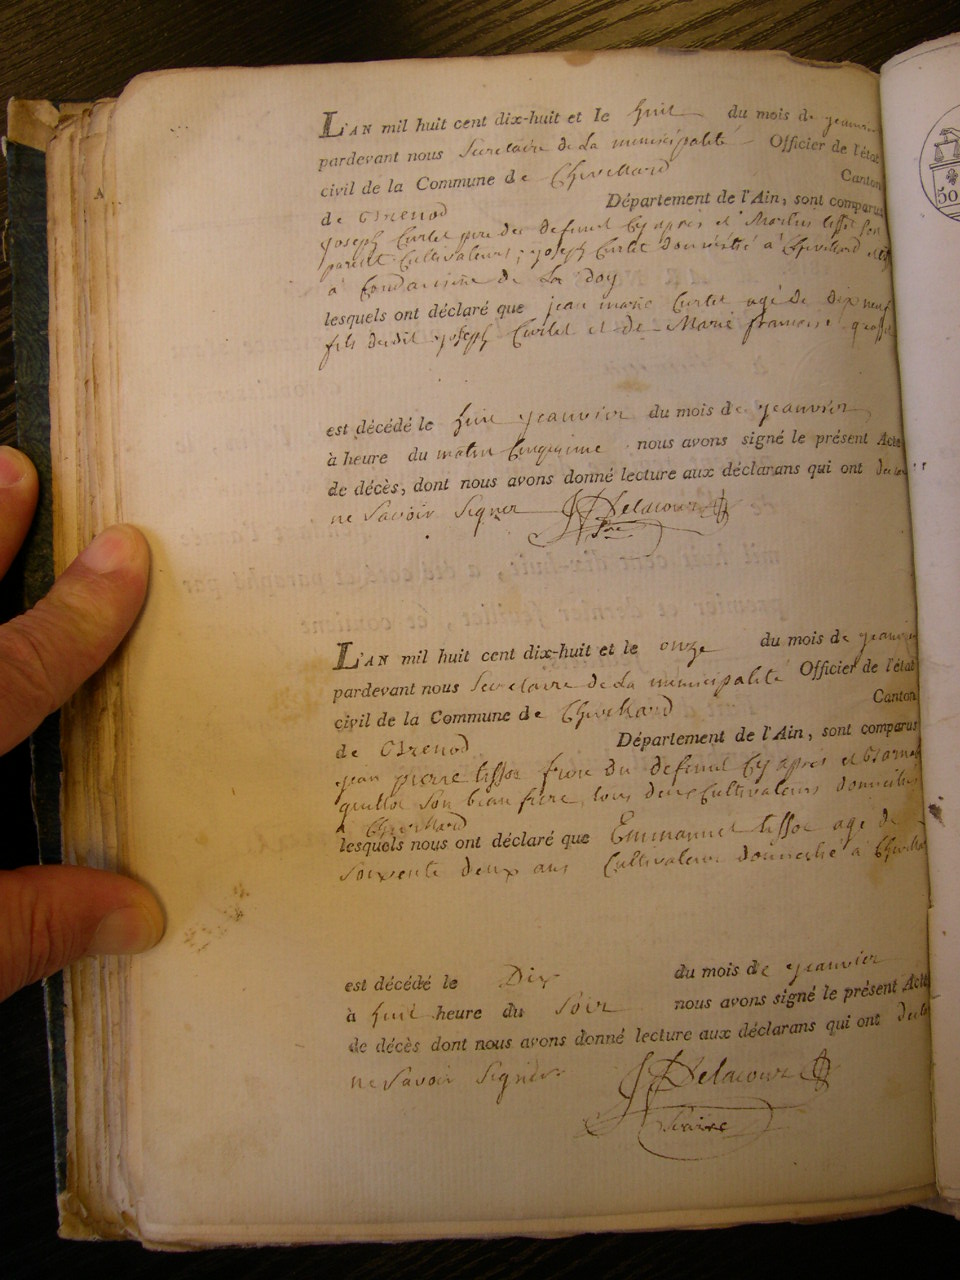 L'AN mil huit cent dix-huit et le huit du mois de jeanvier
pardevant nous Secretaire de La municipalité Officier de l'état
civil de la Commune de Chevillard Canton
de Brenod Département de l'Ain, sont comparus
joseph Curlet pere du defunt Cy apres et Martin tissot Son
parent Cultivateurs, joseph Curlet domicilié a Chevillard et
a Condamine de La doy
lesquels ont déclaré que jean marie Curlet agé de dix neuf
fils dudit joseph Curlet et de Marie françoise
est décédé le huit jeanvier du mois de jeanvier
à heure du matin Cinquieme nous avons signé le présent Acte
de décès, dont nous avons donné lecture aux déclarans qui ont
ne Savoir Signer JF Delacour
Sre
L'AN mil huit cent dix-huit et le onze du mois de jeanvier
pardevant nous Secretaire de La municipalité Officier de l'état
civil de la Commune de Chevillard Canton
de Brenod Département de l'Ain, sont comparus
jean pierre tissot frere du defunt Cy apres et
quillot Son beau frere, tous deux Cultivateurs domicilies
a Chevillard
lesquels nous ont déclaré que Emmanuel tissot agé de
Soixente deux ans Cultivateur domicilié a Chevillard
est décédé le Dix du mois de jeanvier
à huit heure du Soir nous avons signé le présent Acte
de décès dont nous avons donné lecture aux déclarans qui ont
ne Savoir Signer JF Delacour
50